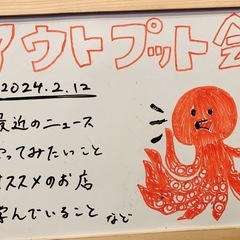 アウトプット会
2024.2.12
最近のニュース
やってみたいこと
オススメのお店
学んでいること など